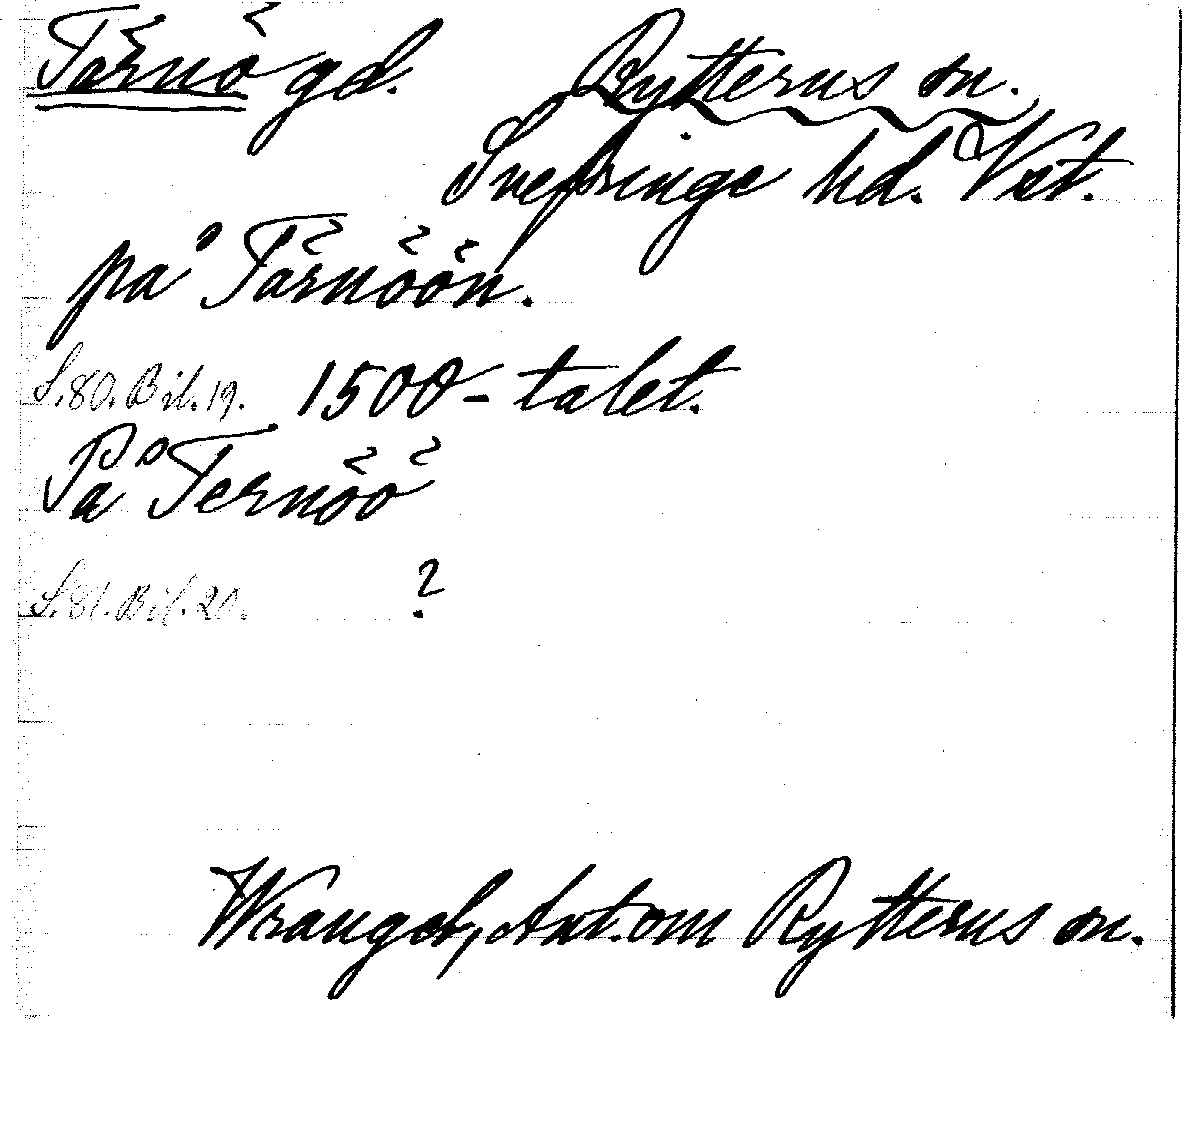 Tärnö gd. Rytterns sn.
Snefringe hd. Vst.
på Tärnöön.
S.80. Bil.19. 1500-talet.
På Ternöö
S.81. Bil.20. ?
Wrangel, Ant. om Rytterns sn.